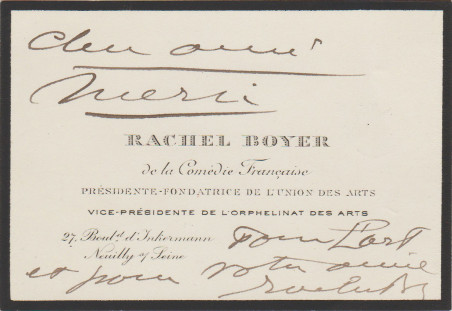 cher ami
merci
RACHEL BOYER
de la Comédie Française
PRÉSIDENTE-FONDATRICE DE L'UNION DES ARTS
VICE-PRÉSIDENTE DE L'ORPHELINAT DES ARTS
27, Boul.d d'Inkermann
Neuilly s/ Seine
Pour l'art
et pour votre amie